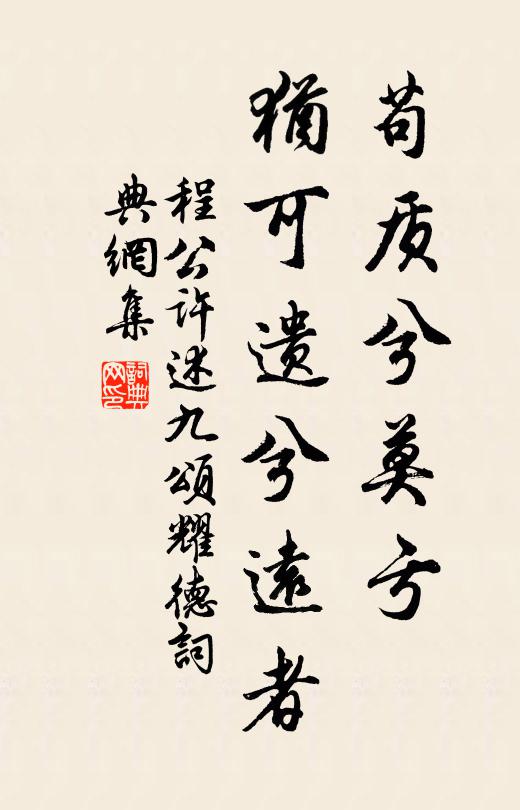 苟质兮莫亏
犹可遗兮遠者
程公许述九頌耀德詞
典網集
詞典网印